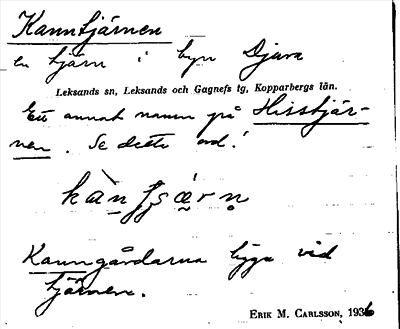 Kanntjärnen
en tjärn i byn Djura
Leksands sn, Leksands och Gagnefs tg, Kopparbergs län.
Ett annat namn på Hisstjär-
nen. Se detta ord!
Kanngårdarna ligga vid
tjärnen.
ERIK M. CARLSSON, 1936